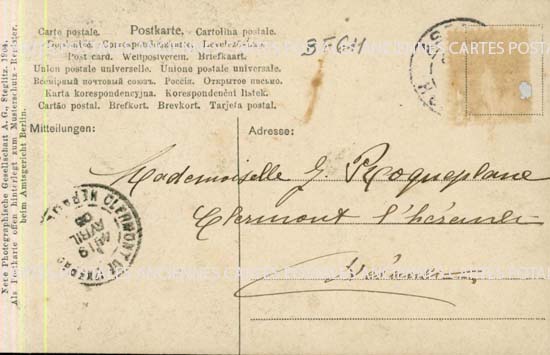 Carte postale. Postkarte. Cartolina postale.
Dopisnice. Correspondenzkarte. Levelező-lap.
Post card. Weltpostverein. Briefkaart.
Union postale universelle. Unione postale universale.
Всемірный почтовый союзъ. Россія. Открытое письмо.
Karta korespondencyjna. Korespondenční lístek.
Cartão postal. Brefkort. Brevkort. Tarjeta postal.
Neue Photographische Gesellschaft A.-G., Steglitz, 1904.
Als Postkarte offen hinterlegt zum Musterschutz-Register
beim Amtsgericht Berlin.
Mitteilungen:
Adresse:
Mademoiselle G. Roqueplane
Clermont l'hérault
Hérault
CLERMONT
HÉRAULT
19
AVRIL
CARTES POSTALES ANCIENNES